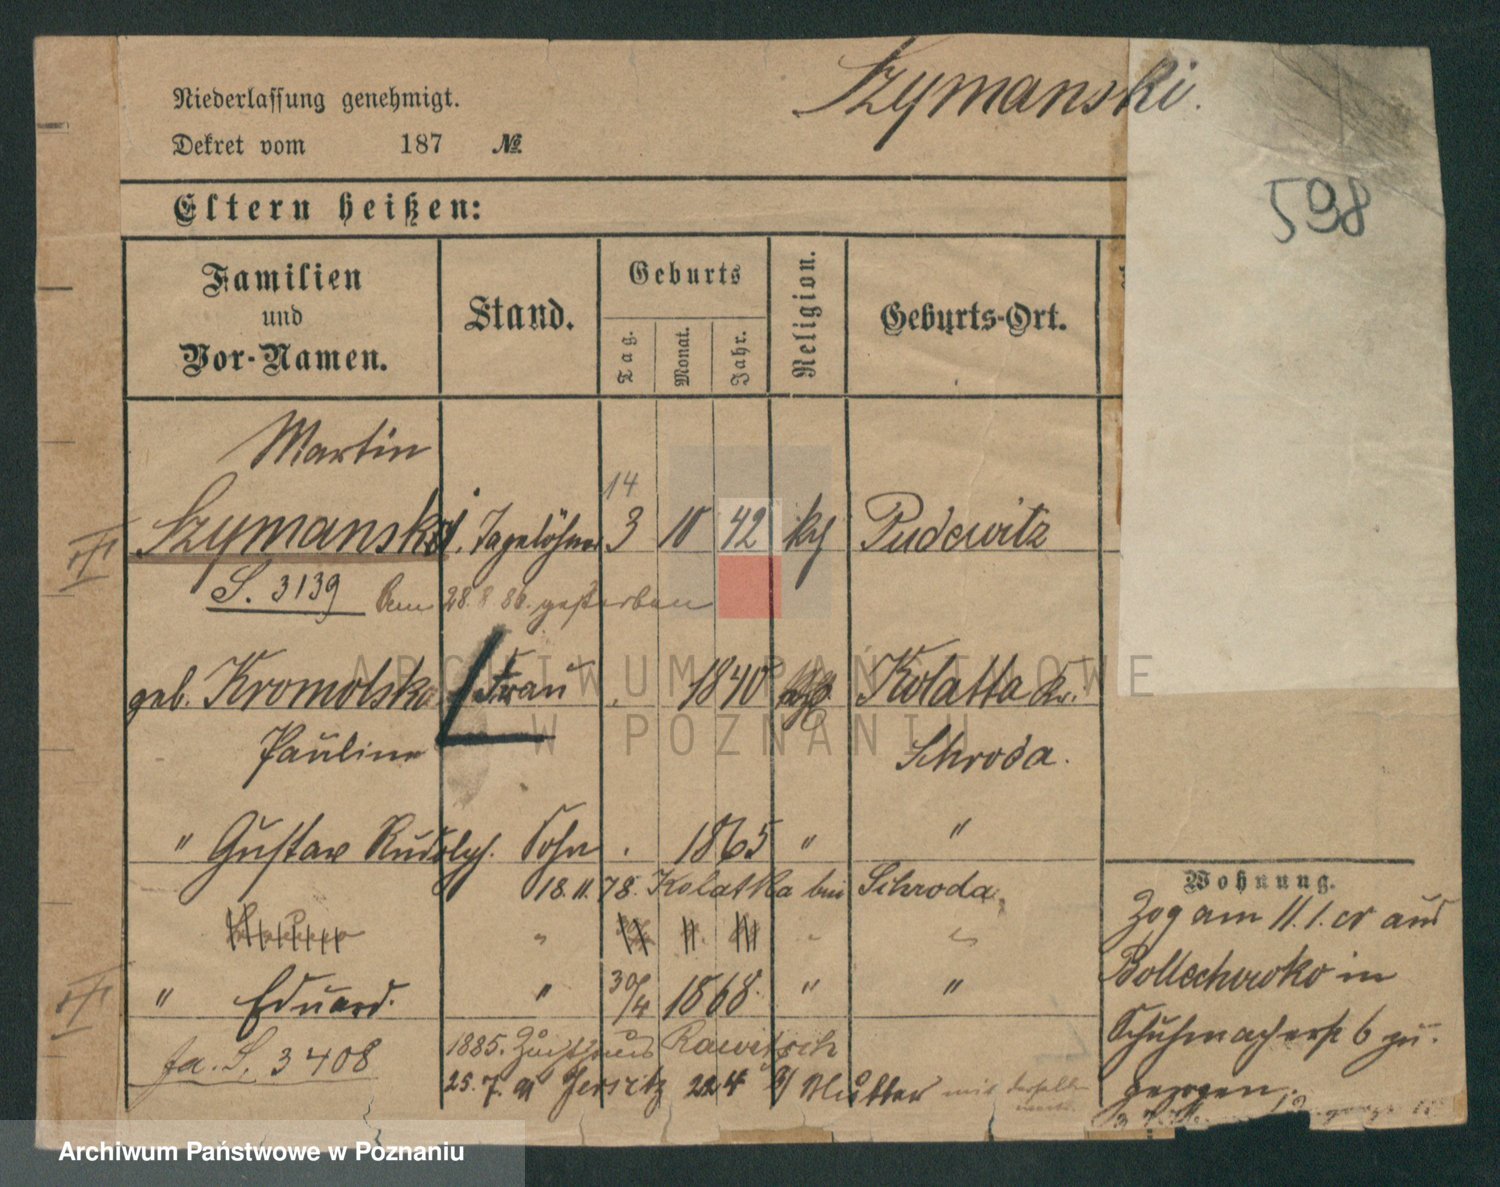 Niederlassung genehmigt.
Szymanski.
Dekret vom 187 №
598
Eltern heißen:
Familien und Vor-Namen.
Stand.
Geburts
Tag.
Monat.
Jahr.
Religion.
Geburts-Ort.
Martin
14
Szymanski. Tagelöhner 3 10 42 kth Pudewitz
S. 3139 28.8 86. gestorben
geb. Kromolska Frau 1840 Kolatta Kr.
Pauline Schroda.
" Gustav Rudolph. Sohn 1865 " "
18.11.78. Kolatka bei Schroda
" Eduard. " 30/4 1868. " "
fa. S. 3408
1885. Zuchthaus Rawitsch
25.7. Jersitz 224 b/ Mutter mit
Wohnung.
Zog am 11.1. cr aus
Bollechowko in
Schuhmacherst 6 zu-
gezogen.
ARCHIWUM PAŃSTWOWE
W POZNANIU
Archiwum Państwowe w Poznaniu